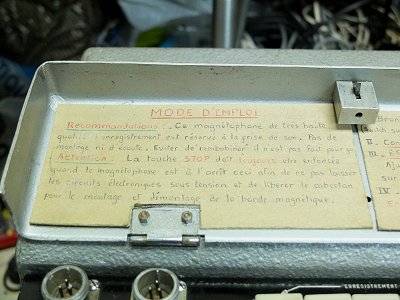 MODE D'EMPLOI
Recommandations : Ce magnétophone de très haute
qualité d'enregistrement est réservé à la prise de son. Pas de
montage ni d'écoute. Eviter de rembobiner il n'est pas fait pour ça
Attention : La touche STOP doit toujours être enfoncée
quand le magnétophone est à l'arrêt ceci afin de ne pas laisser
les circuits électroniques sous tension et de libérer le cabestan
pour le montage et démontage de la bande magnétique.
Bran
II. Con
III.
Aju
sur
IV.
ENREGISTREMENT